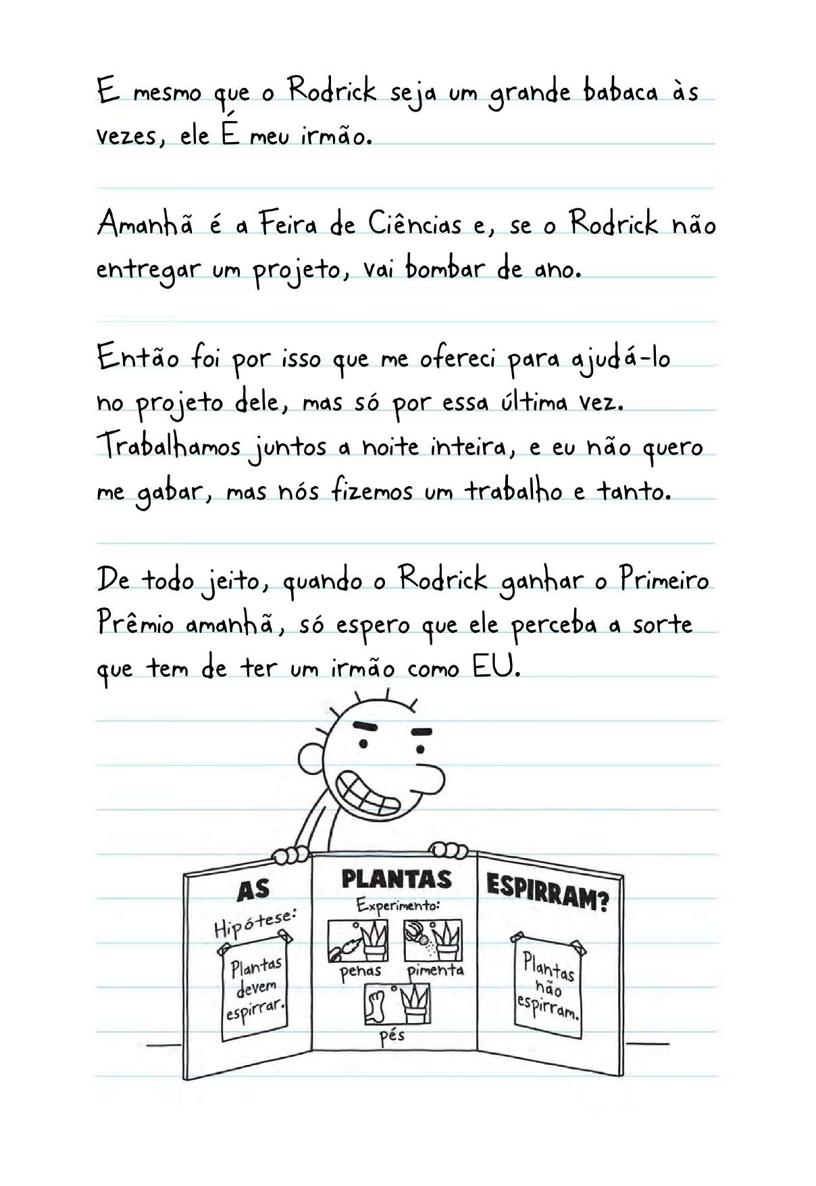 E mesmo que o Rodrick seja um grande babaca às
vezes, ele É meu irmão.
Amanhã é a Feira de Ciências e, se o Rodrick não
entregar um projeto, vai bombar de ano.
Então foi por isso que me ofereci para ajudá-lo
no projeto dele, mas só por essa última vez.
Trabalhamos juntos a noite inteira, e eu não quero
me gabar, mas nós fizemos um trabalho e tanto.
De todo jeito, quando o Rodrick ganhar o Primeiro
Prêmio amanhã, só espero que ele perceba a sorte
que tem de ter um irmão como EU.
AS PLANTAS ESPIRRAM?
Hipótese:
Plantas
devem
espirrar.
Experimento:
penas pimenta
pés
Plantas
não
espirram.